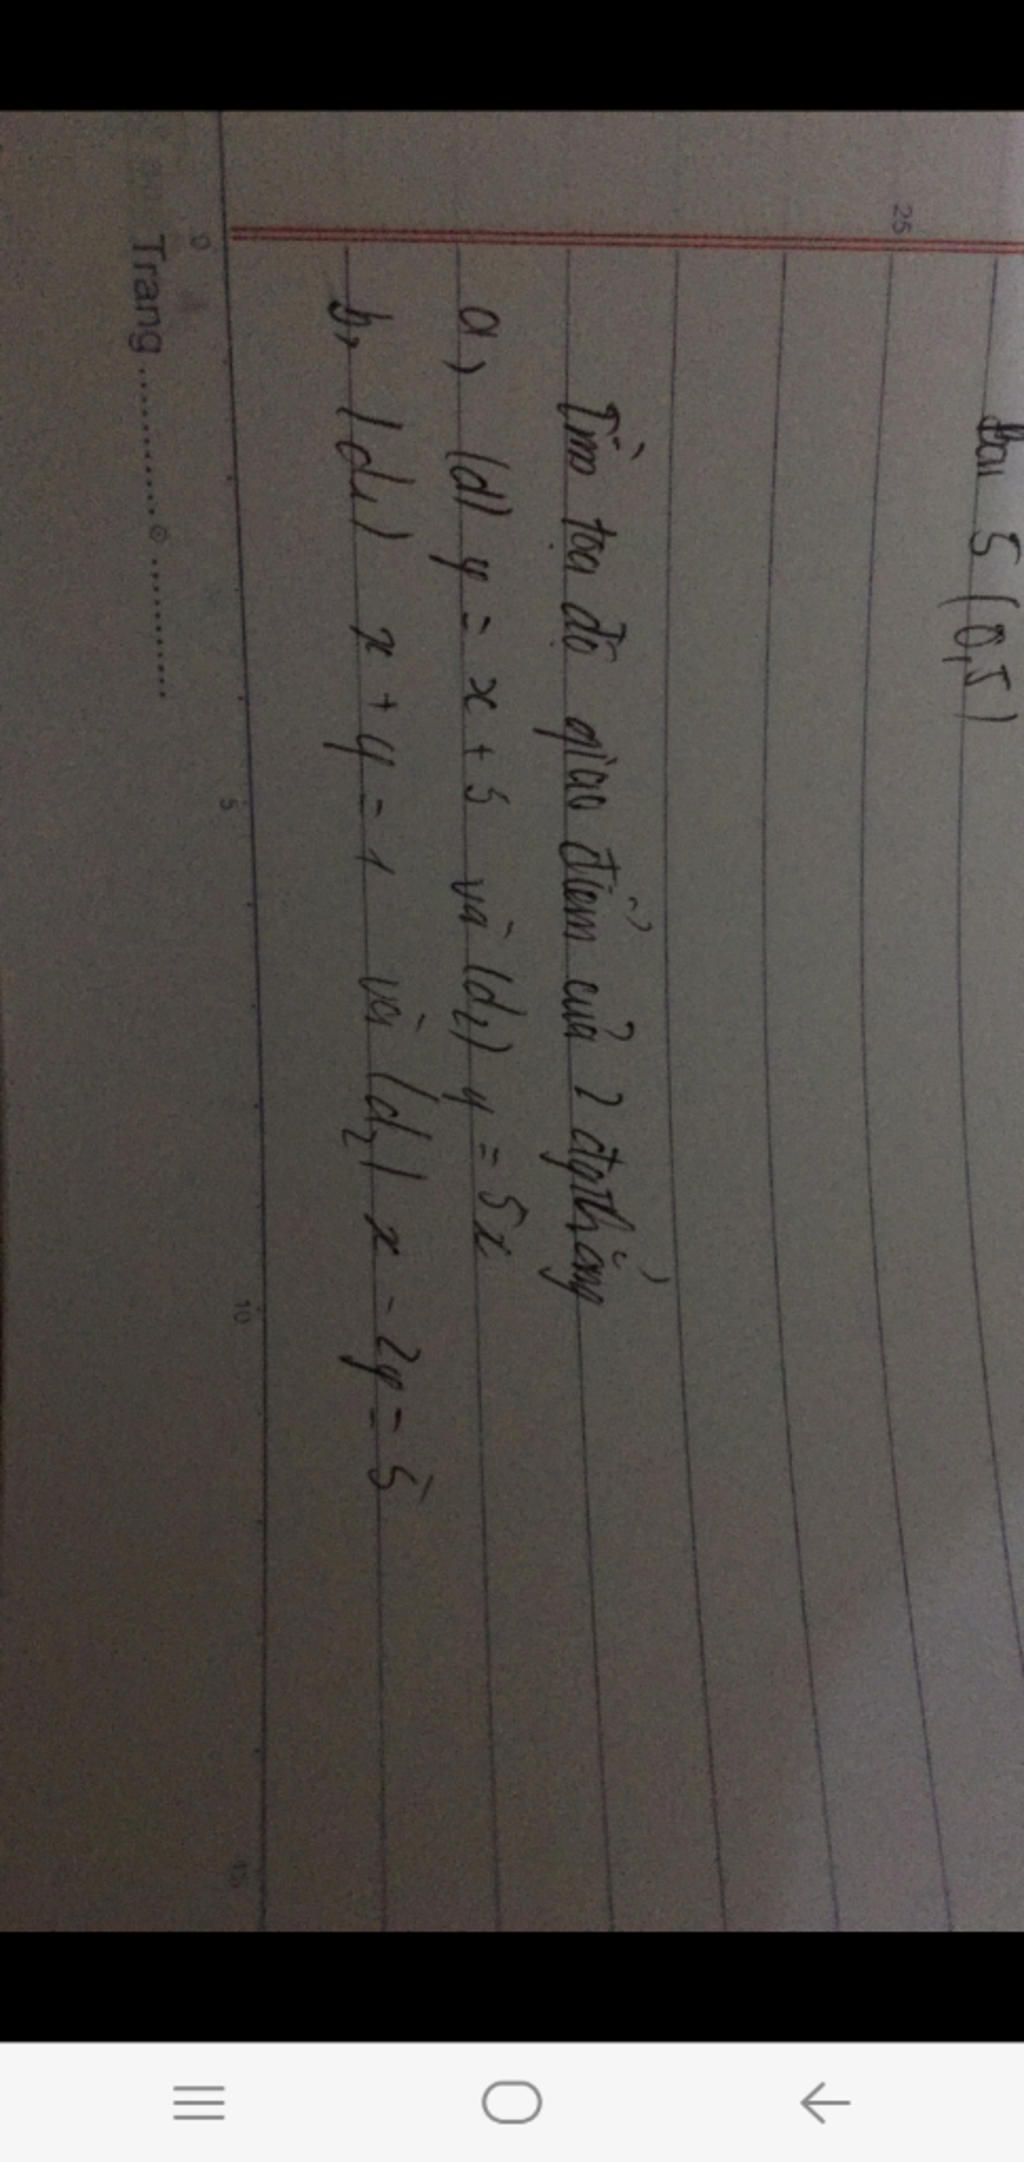 Bài 5 (0,5)
Tìm tọa độ giao điểm của 2 đgthẳng
a, (d) y = x + 5 và (d2) y = 5x
b, (d1) x + y = 1 và (d2) x - 2y = 5
25
0 5 10 15
Trang